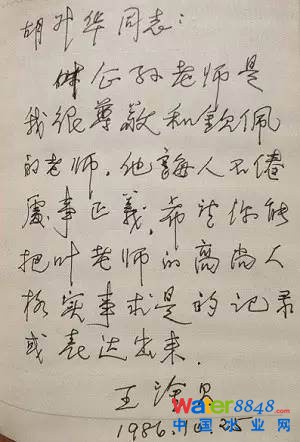 胡升华同志：
叶企孙老师是
我很尊敬和钦佩
的老师，他誨人不倦
處事正義，希望你能
把叶老师的高尚人
格实事求是的记录
或表达出来．
王淦昌
1986.10.25
Water8848.com
中国水业网